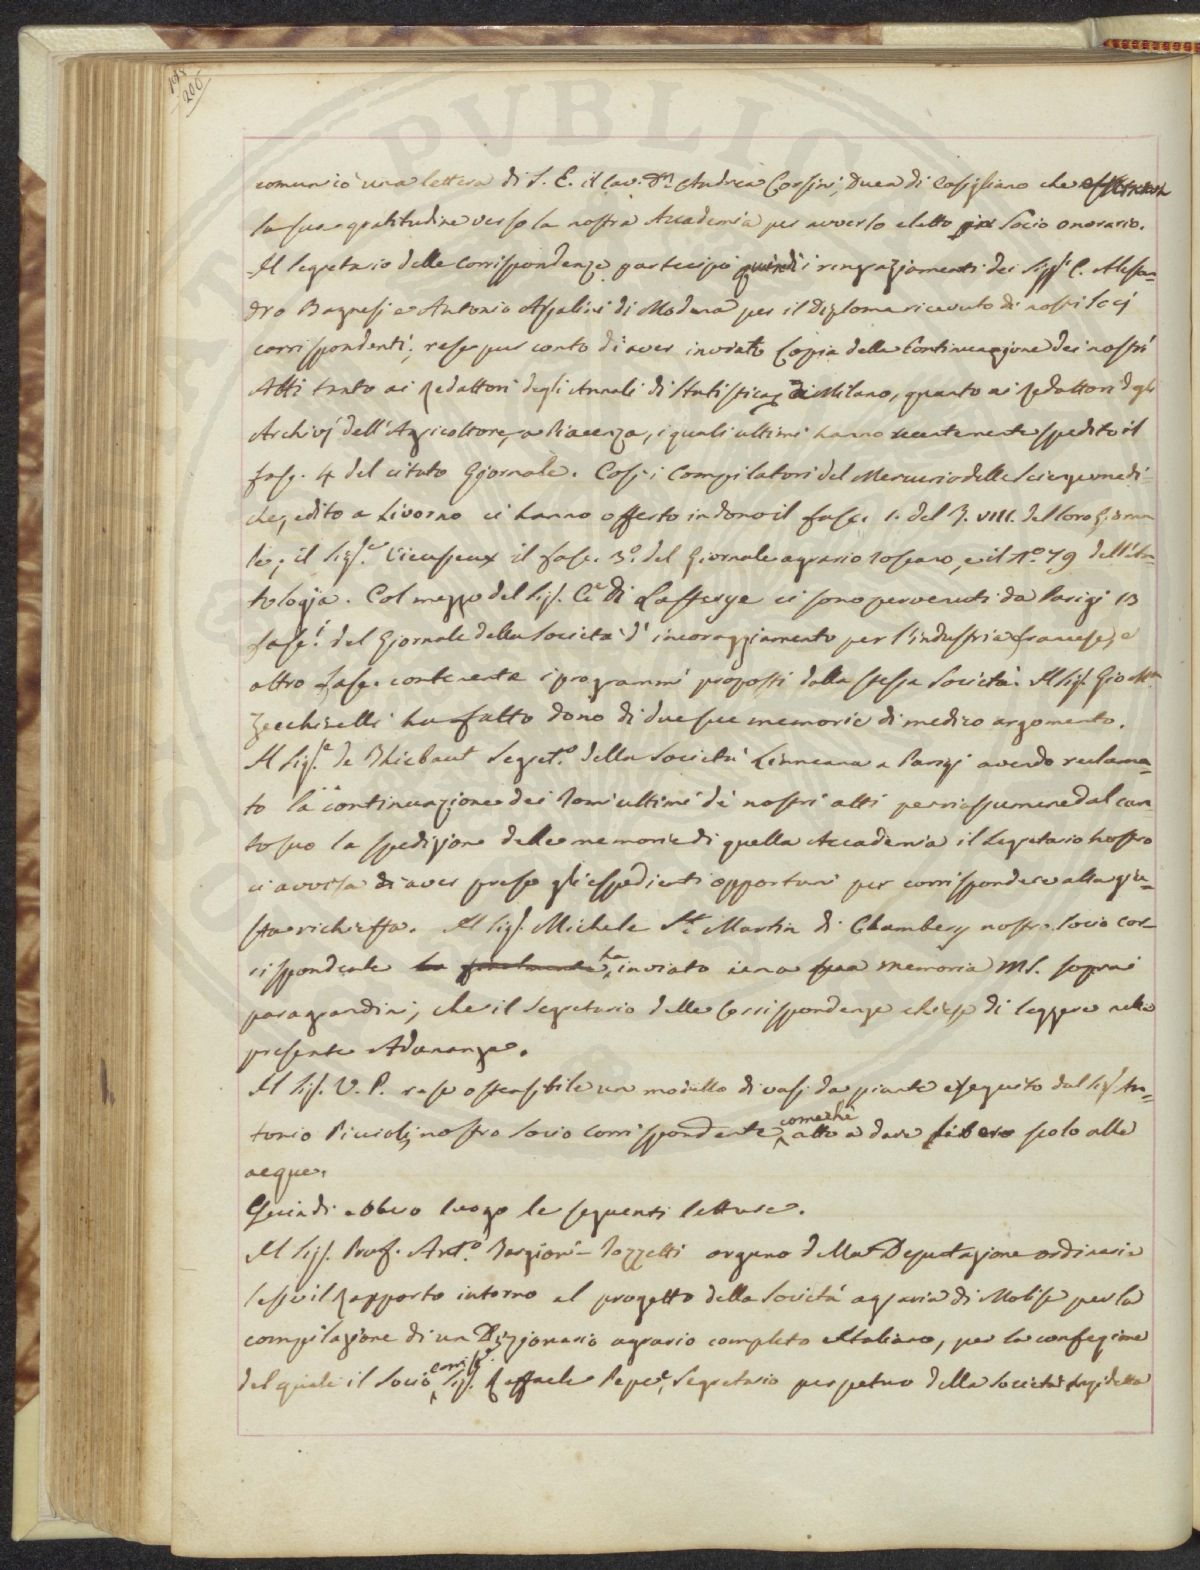 198
206
comunicò una lettera di S. E. il Cav. Dn Andrea Corsini, Duca di Casigliano che esternava
la sua gratitudine verso la nostra Accademia per averlo eletto per Socio onorario.
Il Segretario delle Corrispondenze partecipò quindi i ringraziamenti dei Sigg.i C. Alesan=
dro Bagnesi e Antonio Assalini di Modena per il Diploma ricevuto di nostri Socj
corrispondenti; rese pur conto di aver inviato Copia della Continuazione dei nostri
Atti tanto ai Redattori degli Annali di Statistica di Milano, quanto ai Redattori degli
Archivj dell'Agricoltore, a Piacenza, i quali ultimi hanno recentemente spedito il
fasc. 4 del citato Giornale. Così i Compilatori del Mercurio delle Scienze medi=
che, edito a Livorno ci hanno offerto in dono il fasc. 1. del T. VIII. del loro Giorna
le; il Sig.r Vieusseux il fasc. 3.o del Giornale agrario toscano, e il N.o 79 dell'An
tologia. Col mezzo del Sig. C.e di Lasteyrie ci sono pervenuti da Parigi 13
fasc.i del Giornale della Società d'incoraggiamento per l'industria francese, e
altro fasc. contenente i programmi proposti dalla stessa Società. Il Sig. Gio M.a
Zecchinelli ha fatto dono di due sue memorie di medico argomento.
Il Sig.r de Thiebaut Segret.o della Società Linneana a Parigi avendo reclama=
to la continuazione dei Tomi ultimi de' nostri atti per riassumere dal can
to suo la spedizione delle memorie di quella Accademia il Segretario nostro
ci avvisa di aver preso gli espedienti opportuni per corrispondere alla giu=
sta richiesta. Il Sig. Michele St. Martin di Chambery nostro Socio cor=
rispondente ha inviato una sua memoria MS. sopra i
paragrandini, che il Segretario delle Corrispondenze chiese di leggere nella
presente Adunanza.
Il Sig. V. P. rese ostensibile un modello di vasi da piante eseguito dal Sig. An=
tonio Piccioli, nostro Socio corrispondente comechè atto a dare libero scolo alle
acque.
Quindi ebbero luogo le seguenti letture.
Il Sig. Prof. Ant.o Targioni-Tozzetti organo della Deputazione ordinaria
lesse il Rapporto intorno al progetto della Società agraria di Molise per la
compilazione di un Dizionario agrario completo Italiano, per la confezione
del quale il Socio corrisp.e Sig. Raffaele Pepe, Segretario perpetuo della Società